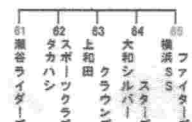 61
瀬谷ライダーズ
62
タカハシ
スポーツクラブ
63
上和田
クラウンズ
64
大和シルバー
スター
65
横浜SS
ファイター